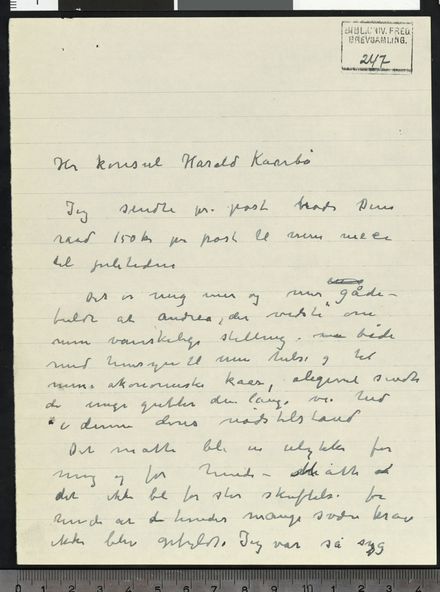 BIBL. UNIV. FRED.
BREVSAMLING.
247
Hr konsul Harald Kaarbø
Jeg sendte pr. post trods Deres
raad 150 kr pr post til min niece
til juletiden
Det er mig mer og mer gåde-
fuldt at Andrea, der vidste om
min vanskelige stilling både
med hensyn til min hels. og til
mine økonomiske kaar, alligevel sendte
de unge gutter den lange vei hid
i denne deres nødstilstand
Det måtte bli en ulykke for
mig og for hende –
det ikke ble for stor skuffelse for
hende at hendes mange svære krav
ikke blev opfyldt. Jeg var så syg